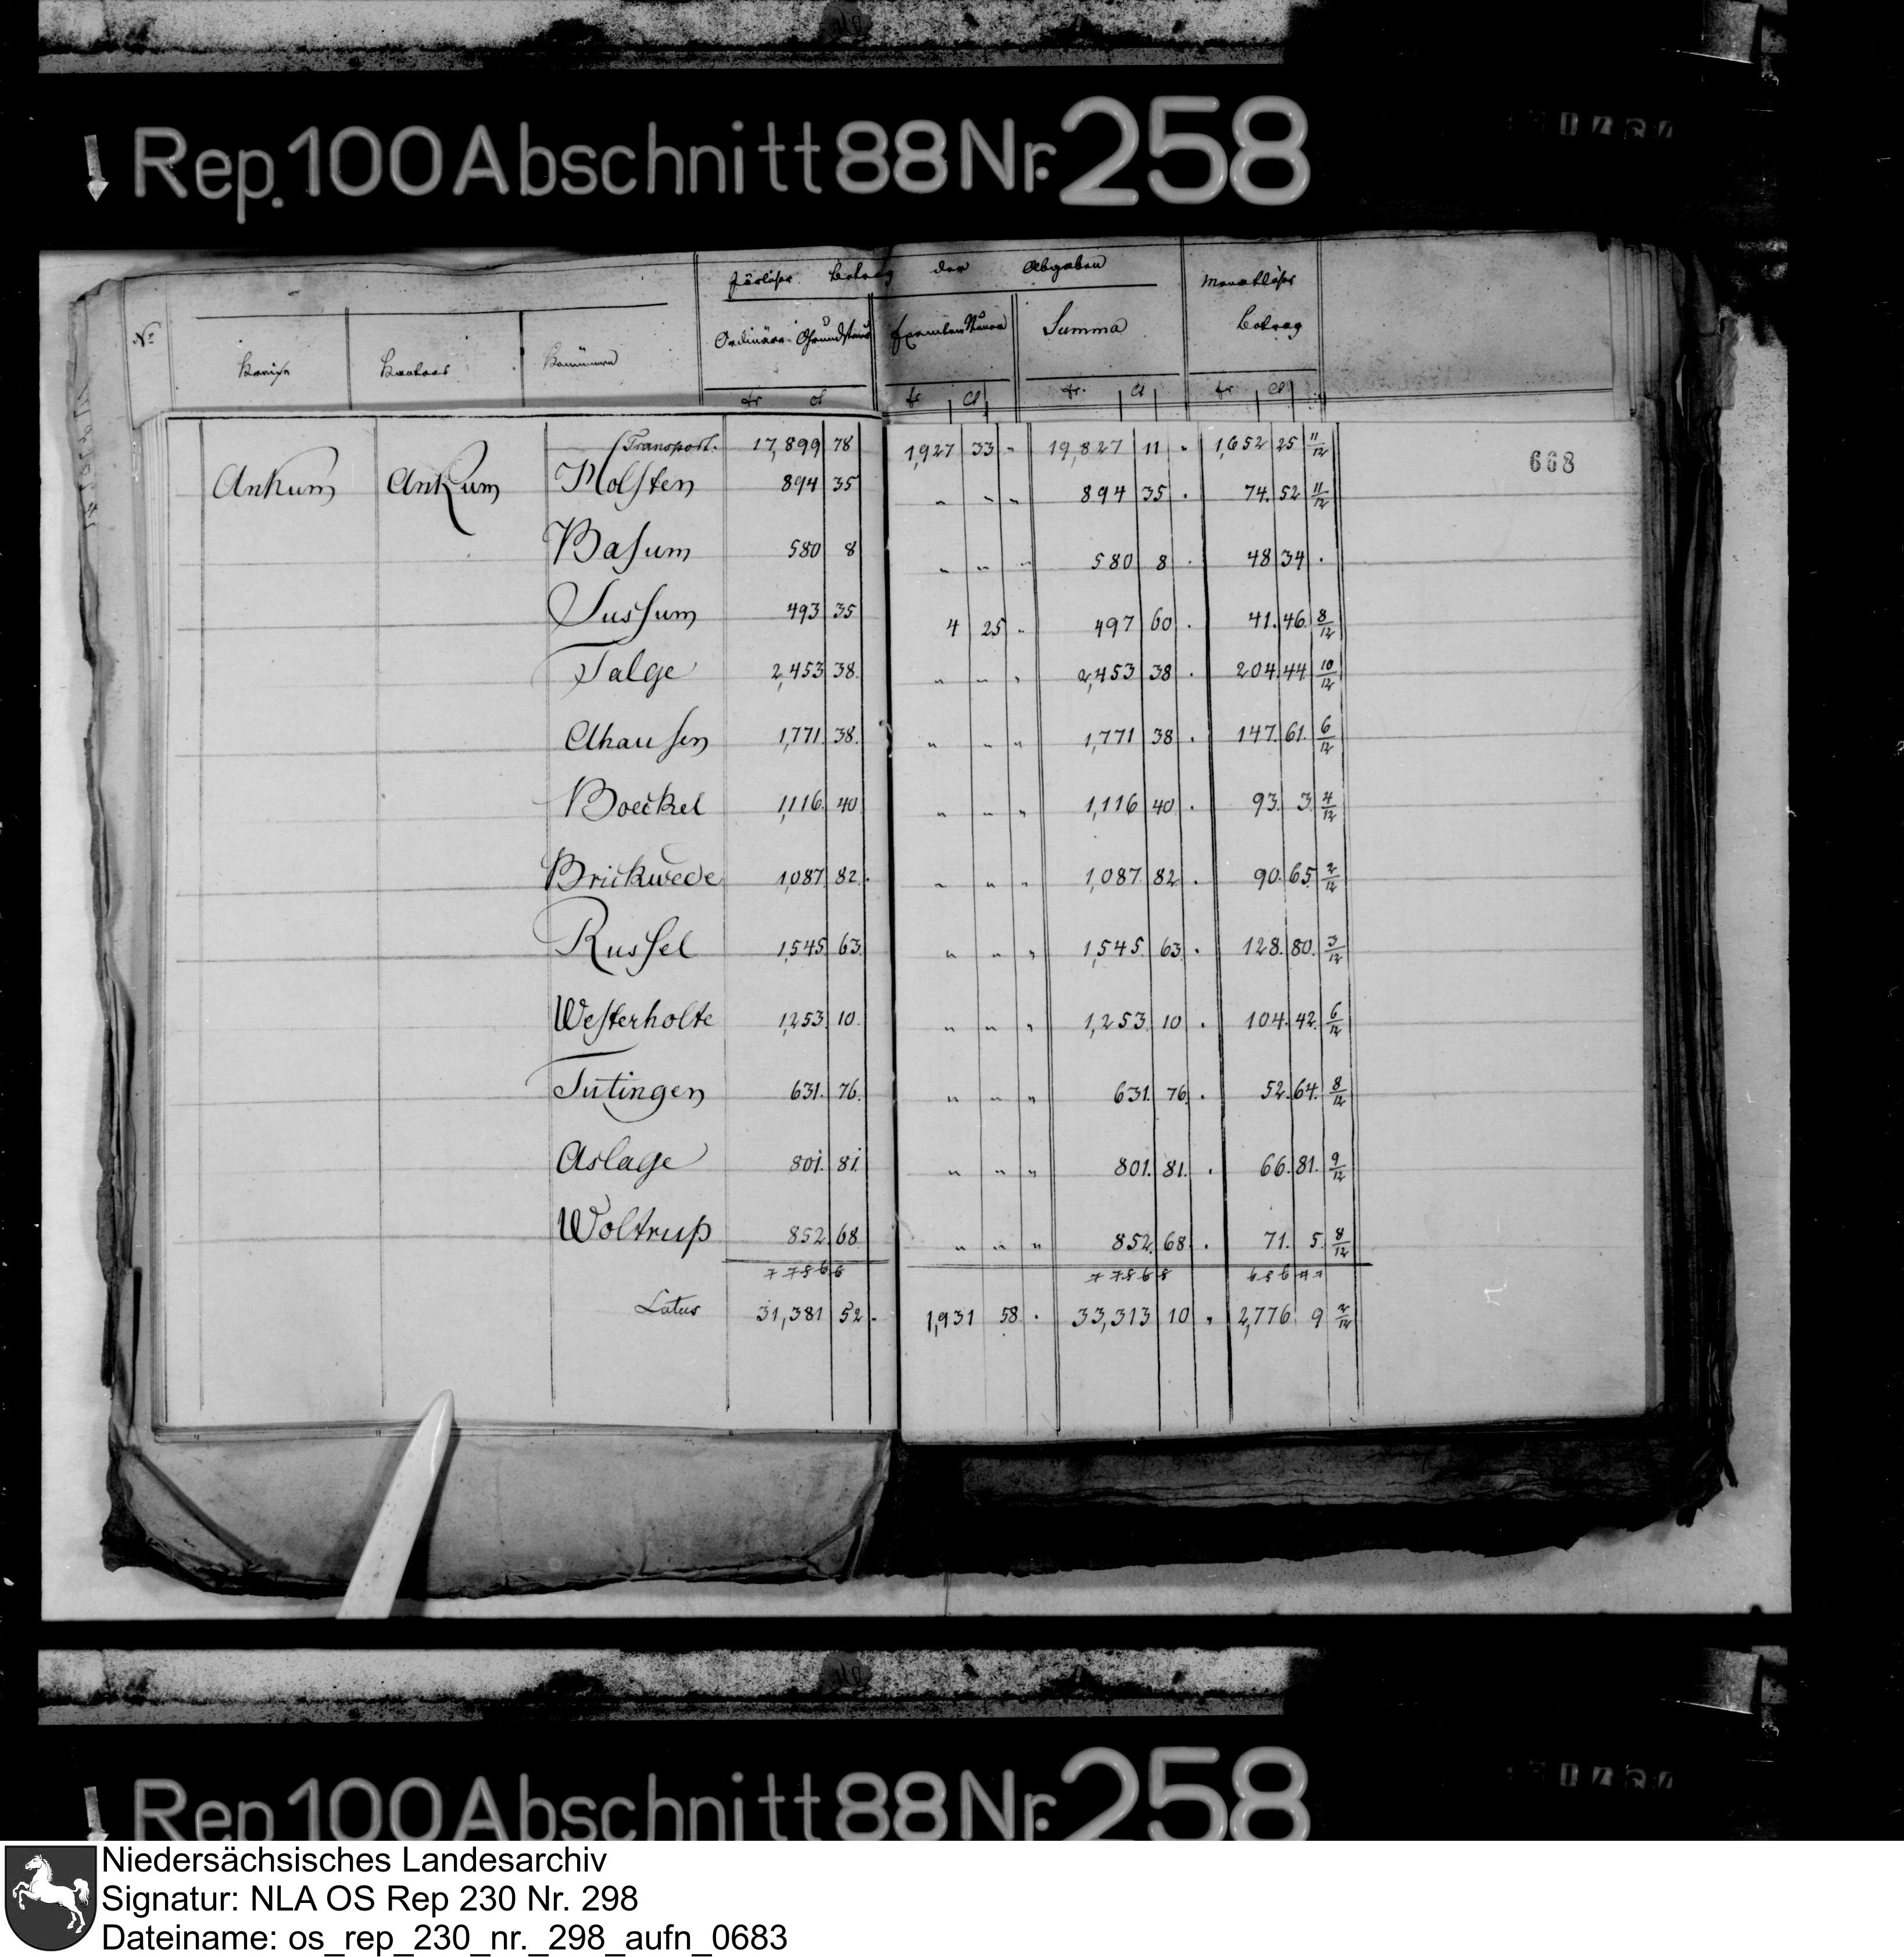 Rep. 100 Abschnitt 88 Nr. 258
Järlicher Betrag der Abgaben Monatlicher
No Ordinäre Grundsteuer Exemten Steuer Summa Betrag
Kreise Kantons Kommunen
fr cl fr Cl fr. Cl fr Cl
Transport. 17,899 78 1,927 33 " 19,827 11 . 1,652 25 11/12
668
Ankum Ankum Holsten 894 35 " " " 894 35 . 74. 52 11/12
Basum 580 8 " " " 580 8 . 48 34 .
Sussum 493 35 4 25 " 497 60 . 41. 46. 8/12
Talge 2,453 38. " " " 2,453 38 . 204. 44 10/12
Ahausen 1,771. 38. " " " 1,771 38 . 147. 61. 6/12
Boeckel 1,116. 40 " " " 1,116 40 . 93. 3. 4/12
Brickwede 1,087 82. " " " 1,087 82 . 90. 65. 2/12
Russel 1,545. 63. " " " 1,545. 63 . 128. 80. 3/12
Westerholte 1,253. 10. " " " 1,253. 10 . 104. 42. 6/12
Tütingen 631. 76. " " " 631. 76. . 52. 64. 8/12
Aslage 801. 81. " " " 801. 81. . 66. 81. 9/12
Woltrup 852. 68 " " " 852. 68. . 71. 5. 8/12
Latus 31,381 52. 1,931 58 . 33,313 10 " 2,776 9 2/12
Rep. 100 Abschnitt 88 Nr. 258
Niedersächsisches Landesarchiv
Signatur: NLA OS Rep 230 Nr. 298
Dateiname: os_rep_230_nr._298_aufn_0683